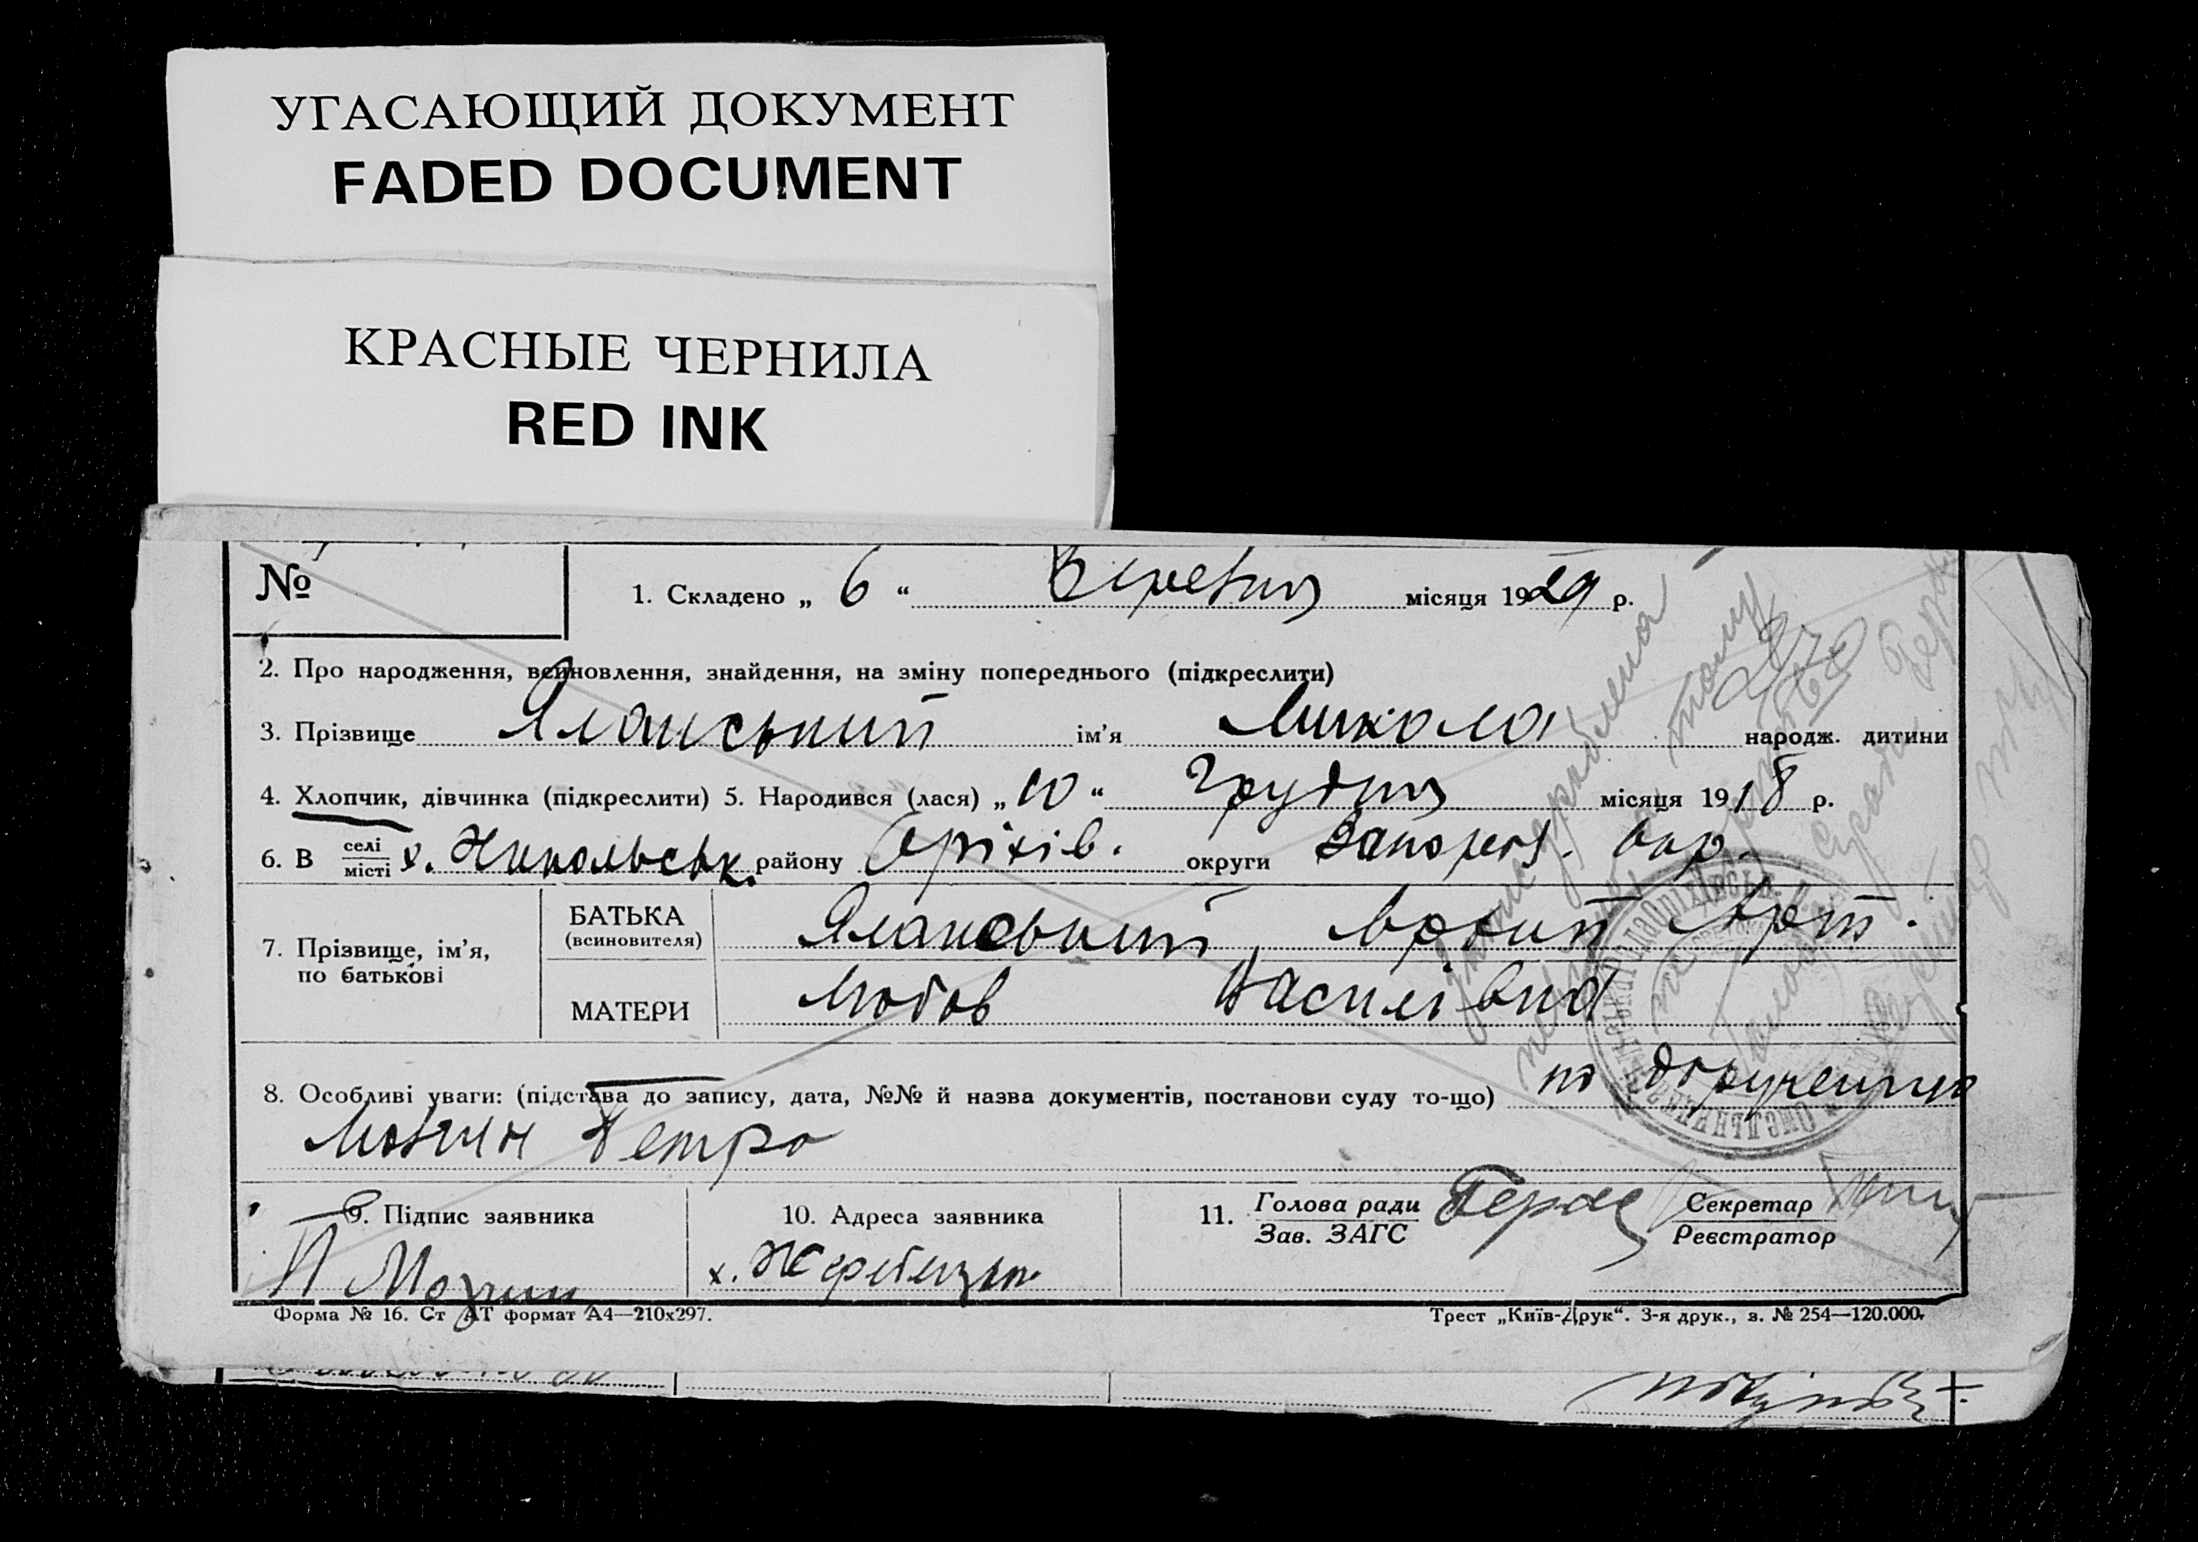 УГАСАЮЩИЙ ДОКУМЕНТ
FADED DOCUMENT
КРАСНЫЕ ЧЕРНИЛА
RED INK
№
1. Складено „ 6 “ Березня місяця 1929 р.
2. Про народження, всиновлення, знайдення, на зміну попереднього (підкреслити)
3. Прізвище Яланський ім’я Микола народж. дитини
4. Хлопчик, дівчинка (підкреслити) 5. Народився (лася) „ 10 “ Грудня місяця 1918 р.
6. В селі/місті х. Никольськ. району Оріхів. округи Запоріз. окр.
7. Прізвище, ім’я, по батькові
БАТЬКА (всиновителя) Яланський, Архип Арт.
МАТЕРИ Любов Василівна
8. Особливі уваги: (підстава до запису, дата, №№ й назва документів, постанови суду то-що) по дорученню
Мовчн Петро
9. Підпис заявника
10. Адреса заявника
11. Голова ради Секретар
Зав. ЗАГС Реєстратор
П Мовчн
х. Жеребецьк.
Форма № 16. Ст АТ формат А4—210х297.
Трест „Київ-Друк“. 3-я друк., з. № 254—120.000.